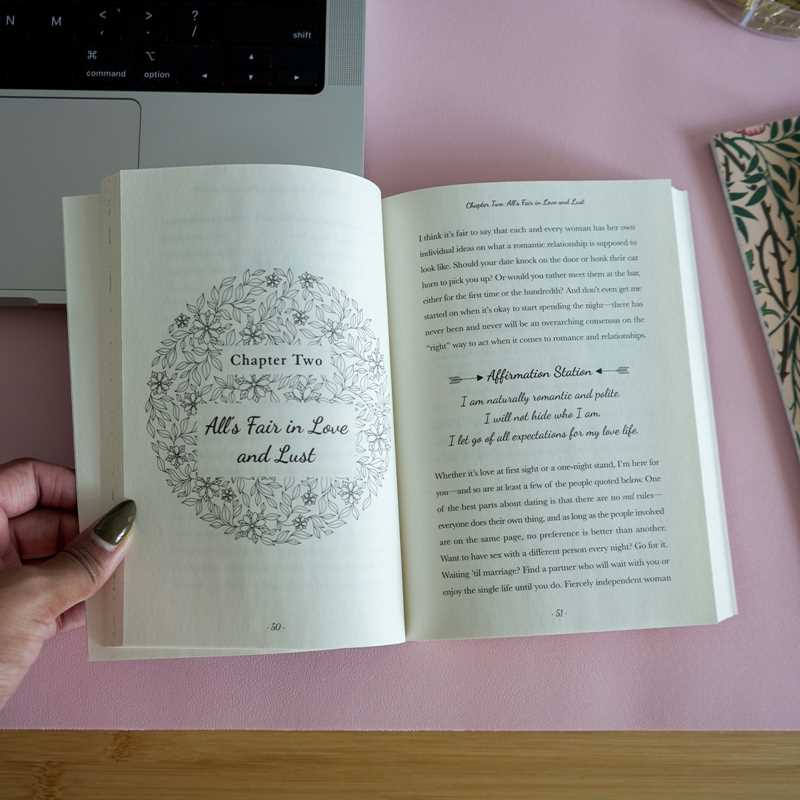 N M < , > . ? / shift
⌘ command ⌥ option
Chapter Two
All's Fair in Love
and Lust
- 50 -
Chapter Two: All's Fair in Love and Lust
I think it's fair to say that each and every woman has her own
individual ideas on what a romantic relationship is supposed to
look like. Should your date knock on the door or honk their car
horn to pick you up? Or would you rather meet them at the bar,
either for the first time or the hundredth? And don't even get me
started on when it's okay to start spending the night—there has
never been and never will be an overarching consensus on the
“right” way to act when it comes to romance and relationships.
Affirmation Station
I am naturally romantic and polite.
I will not hide who I am.
I let go of all expectations for my love life.
Whether it's love at first sight or a one-night stand, I'm here for
you—and so are at least a few of the people quoted below. One
of the best parts about dating is that there are no real rules—
everyone does their own thing, and as long as the people involved
are on the same page, no preference is better than another.
Want to have sex with a different person every night? Go for it.
Waiting 'til marriage? Find a partner who will wait with you or
enjoy the single life until you do. Fiercely independent woman
- 51 -